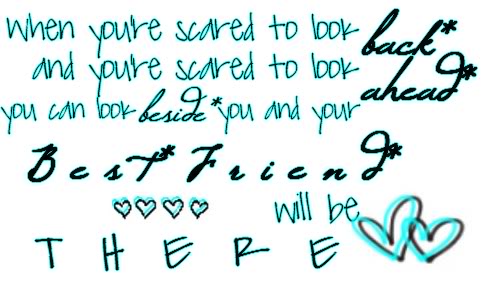 when you're scared to look back*
and you're scared to look ahead*
you can look beside* you and your
BesT* Friend*
will be
THERE